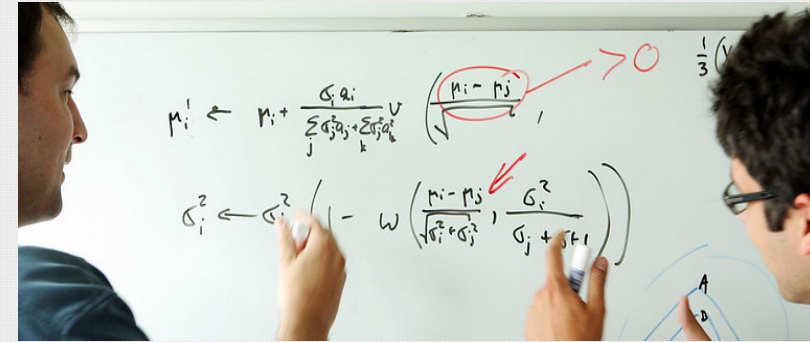 μi' ← μi + σi ai / Σj σj² aj + Σk σk² ak² v ( μi - μj / √ , > 0
1/3 (
σi² ← σi² ( 1 - w ( μi - μj / √σi² + σj² , σi² / σj + ) )
A
D